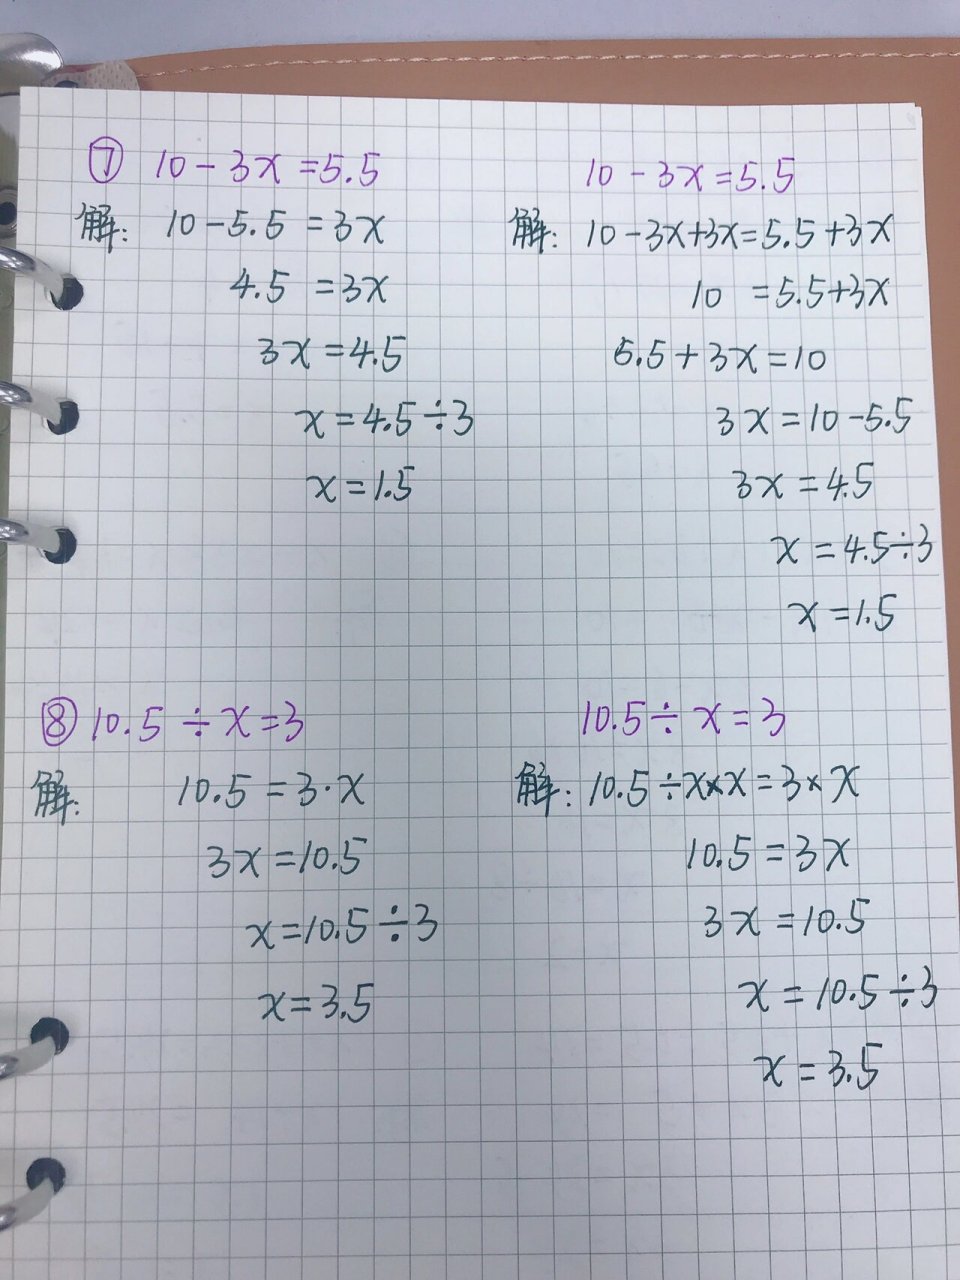 ⑦ 10-3x=5.5
解: 10-5.5=3x
4.5=3x
3x=4.5
x=4.5÷3
x=1.5
10-3x=5.5
解: 10-3x+3x=5.5+3x
10=5.5+3x
5.5+3x=10
3x=10-5.5
3x=4.5
x=4.5÷3
x=1.5
⑧ 10.5÷x=3
解: 10.5=3·x
3x=10.5
x=10.5÷3
x=3.5
10.5÷x=3
解: 10.5÷x×x=3×x
10.5=3x
3x=10.5
x=10.5÷3
x=3.5